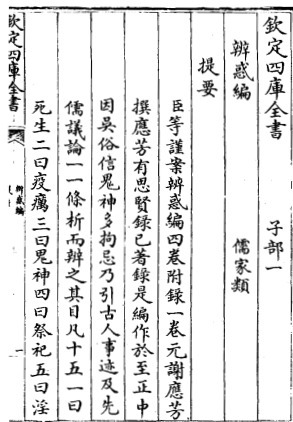 欽定四庫全書　子部一
辨惑編　儒家類
提要
臣等謹案辨惑編四卷附録一卷元謝應芳
撰應芳有思賢録已著録是編作於至正中
因吳俗信鬼神多拘忌乃引古人事迹及先
儒議論一一條析而辨之其目凡十五一曰
死生二曰疫癘三曰鬼神四曰祭祀五曰淫
欽定四庫全書
辨惑編
一